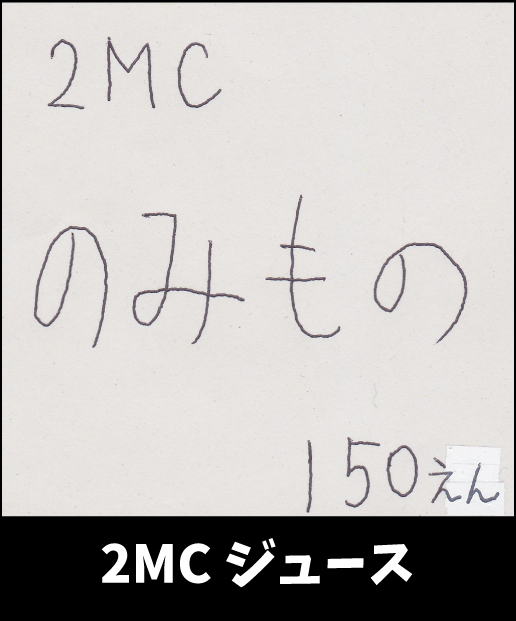 2MC
のみもの
150えん
2MC ジュース